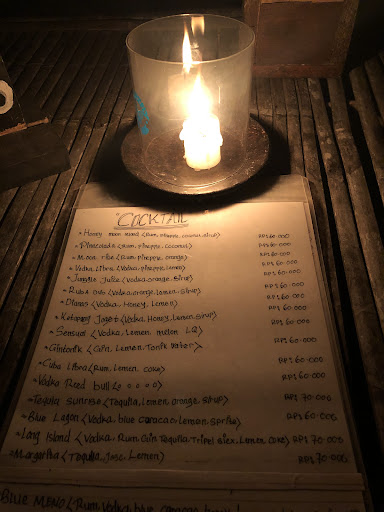 COCKTAIL
* Honey moon island (Rum, pineppe, coconut, sirup) RP: 60.000
* Pinacolada (Rum, pineppe, coconut) RP: 60.000
* Moon ribe (Rum, pineppe, orange) RP: 60.000
* Vodka Libra (Vodka, pineppe, lemon) RP: 60.000
* Jungle Juice (Vodka, orange, sirup) RP: 60.000
* (Vodka, orange, lemon, sirup) RP: 60.000
* (Vodka, Honey, Lemon) RP: 60.000
* Ketapang (Vodka, Honey, Lemon, sirup) RP: 60.000
* Sensuel (Vodka, Lemon, melon LQ) RP: 60.000
* Gintonik (Gin, Lemon, Tonik Water) RP: 60.000
* Cuba Libra (Rum, Lemon, coke) RP: 60.000
* Vodka Reed bull RP: 60.000
* Tequila Sunrise (Taquilla, lemon, orange, sirup) RP: 70.000
* Blue Lagon (Vodka, blue caracao, Lemon, sprite) RP: 60.000
* Long Island (Vodka, Rum, Gin, Taquilla, Tripel siex, Lemon, Coke) RP: 70.000
* Margarita (Taquilla, Lemon) RP: 70.000
BLUE (Rum, Vodka, blue